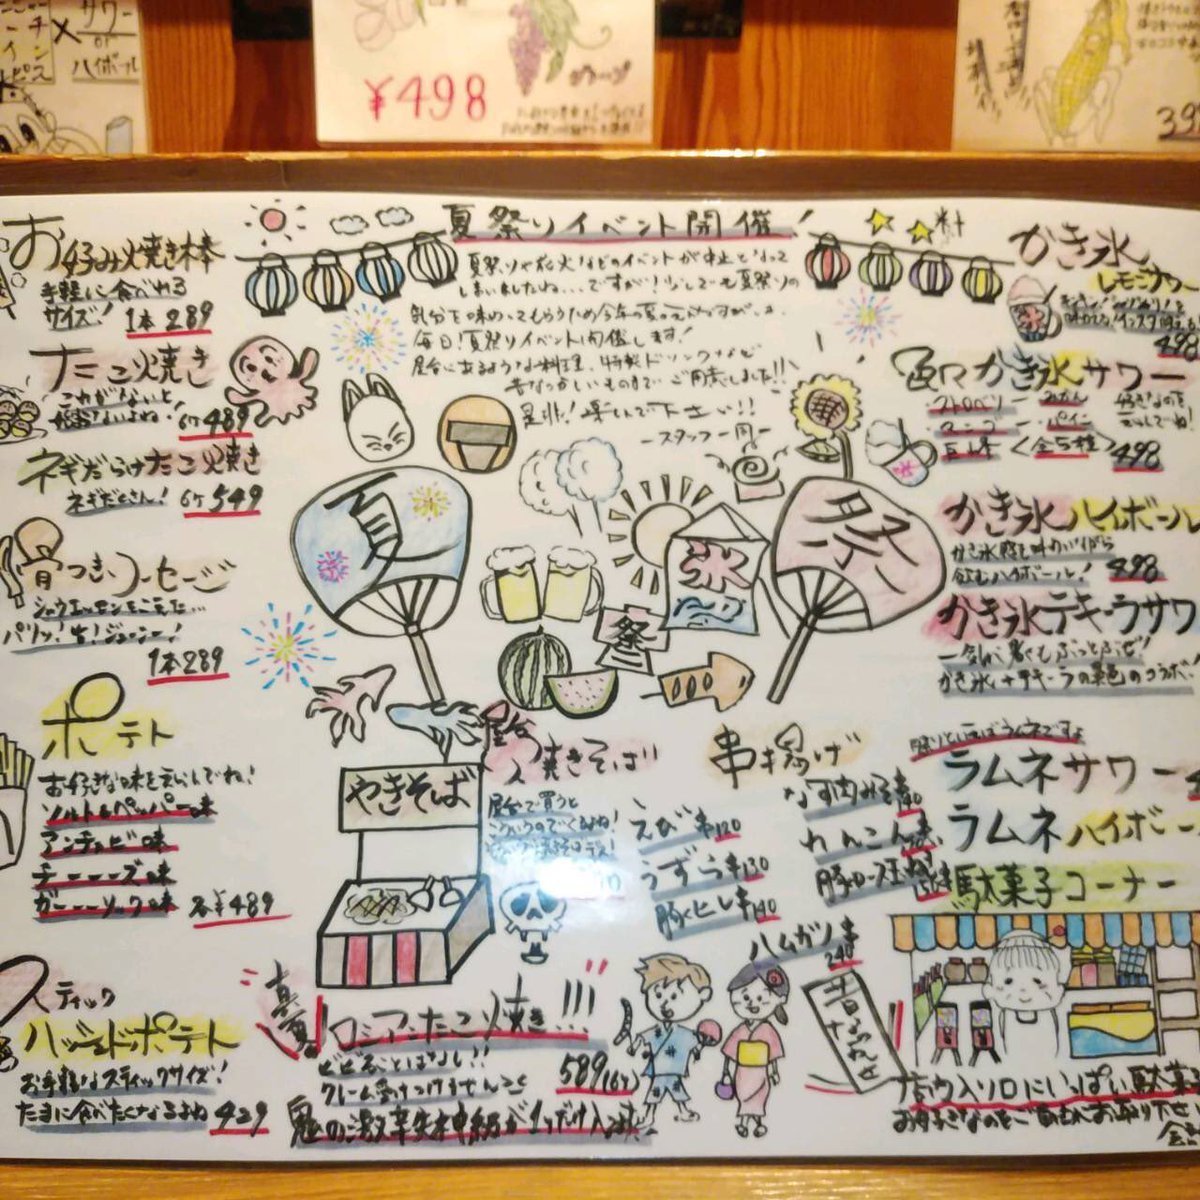 サワー
or
ハイボール
×
¥498
グレープ
39
夏祭りイベント開催!
夏祭りや花火などのイベントが中止となって
しまいましたね…ですが!少しでも夏祭りの
気分を味わってもらうため今年の夏
毎日!夏祭りイベント開催します!
屋台にあるような料理、特製ドリンクなど
昔なつかしいものまでご用意しました!!
是非!楽しんで下さい!!
ースタッフ一同ー
お好み焼き棒
手軽に食べれる
サイズ! 1本289
たこ焼き
これがないと
始まらないよね! 6ケ489
ネギだらけたこ焼き
ネギだくさん! 6ケ549
骨つきソーセージ
シャウエッセンをこえた…
パリッ!ジューシー!
1本289
ポテト
お好きな味をえらんでね!
ソルト&ペッパー味
アンチョビ味
チーーーズ味
ガーーーリック味
各¥489
スティック
ハッシュドポテト
お手軽なスティックサイズ!
たまに食べたくなるよね 429
夏
祭
華
氷
祭
屋台
焼きそば
やきそば
屋台で買うと
串揚げ
えび串120
うずら串130
豚ヒレ串140
なす肉みそ串140
れんこん串
ハムカツ串
240
真夏の
ロシアンたこ焼き!!!
ビビることはなし!!
クレーム受けつけませんこと
589(6ケ)
鬼の激辛失神級が1つだけ入
かき氷
レモンサワー
498
色々かき氷サワー
ストロベリー みかん
マンゴー パイン
巨峰 <全5種>
498
かき氷ハイボール
かき氷感を味わいながら
飲むハイボール! 498
かき氷テキーラサワ
一気に暑くもぶっとぶぜ!
かき氷+テキーラの異色のコラボ!
祭りといえばラムネですよ
ラムネサワー
ラムネハイボー
駄菓子コーナー
昔なつかしの
店内入り口にいっぱい駄菓
お好きなのをご自由にお取り下せ